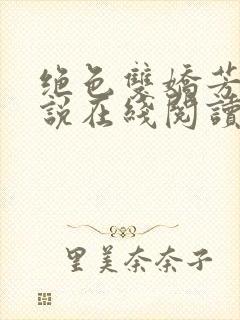 绝色雙嬌芳
說在綫閱讀
里美奈奈子